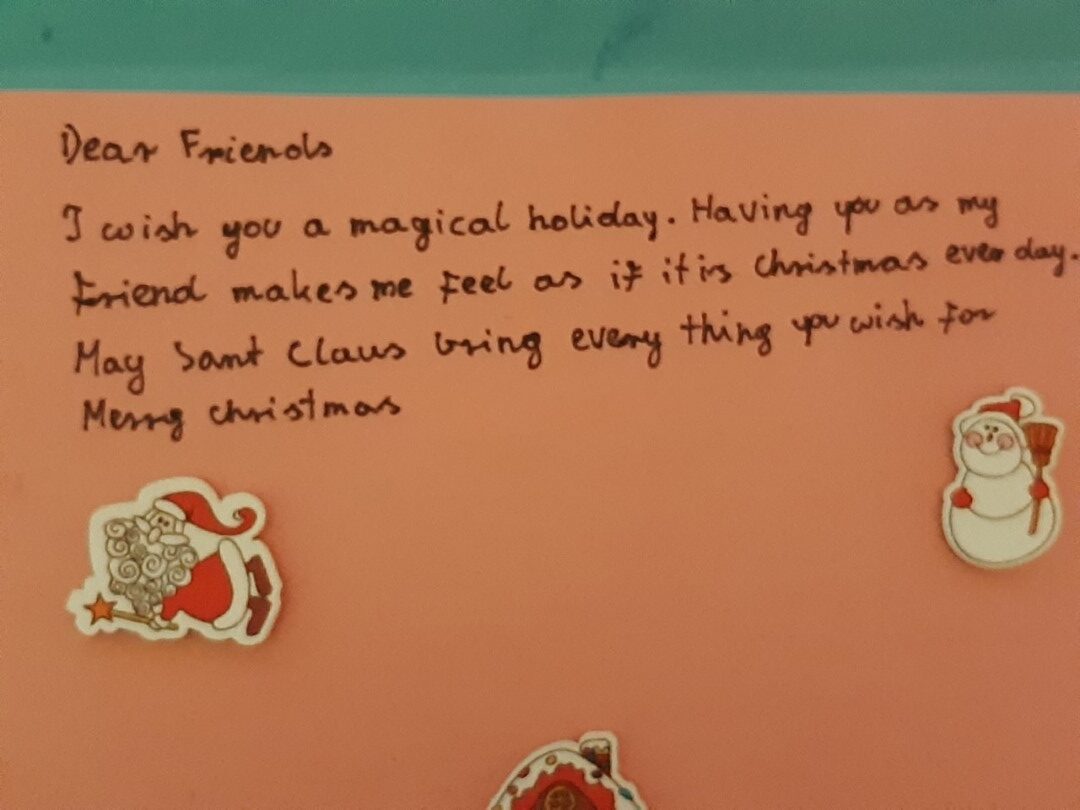 Dear Friends
I wish you a magical holiday. Having you as my
Friend makes me Feel as if it is Christmas ever day.
May Sant Claus bring every thing you wish for
Merry christmas